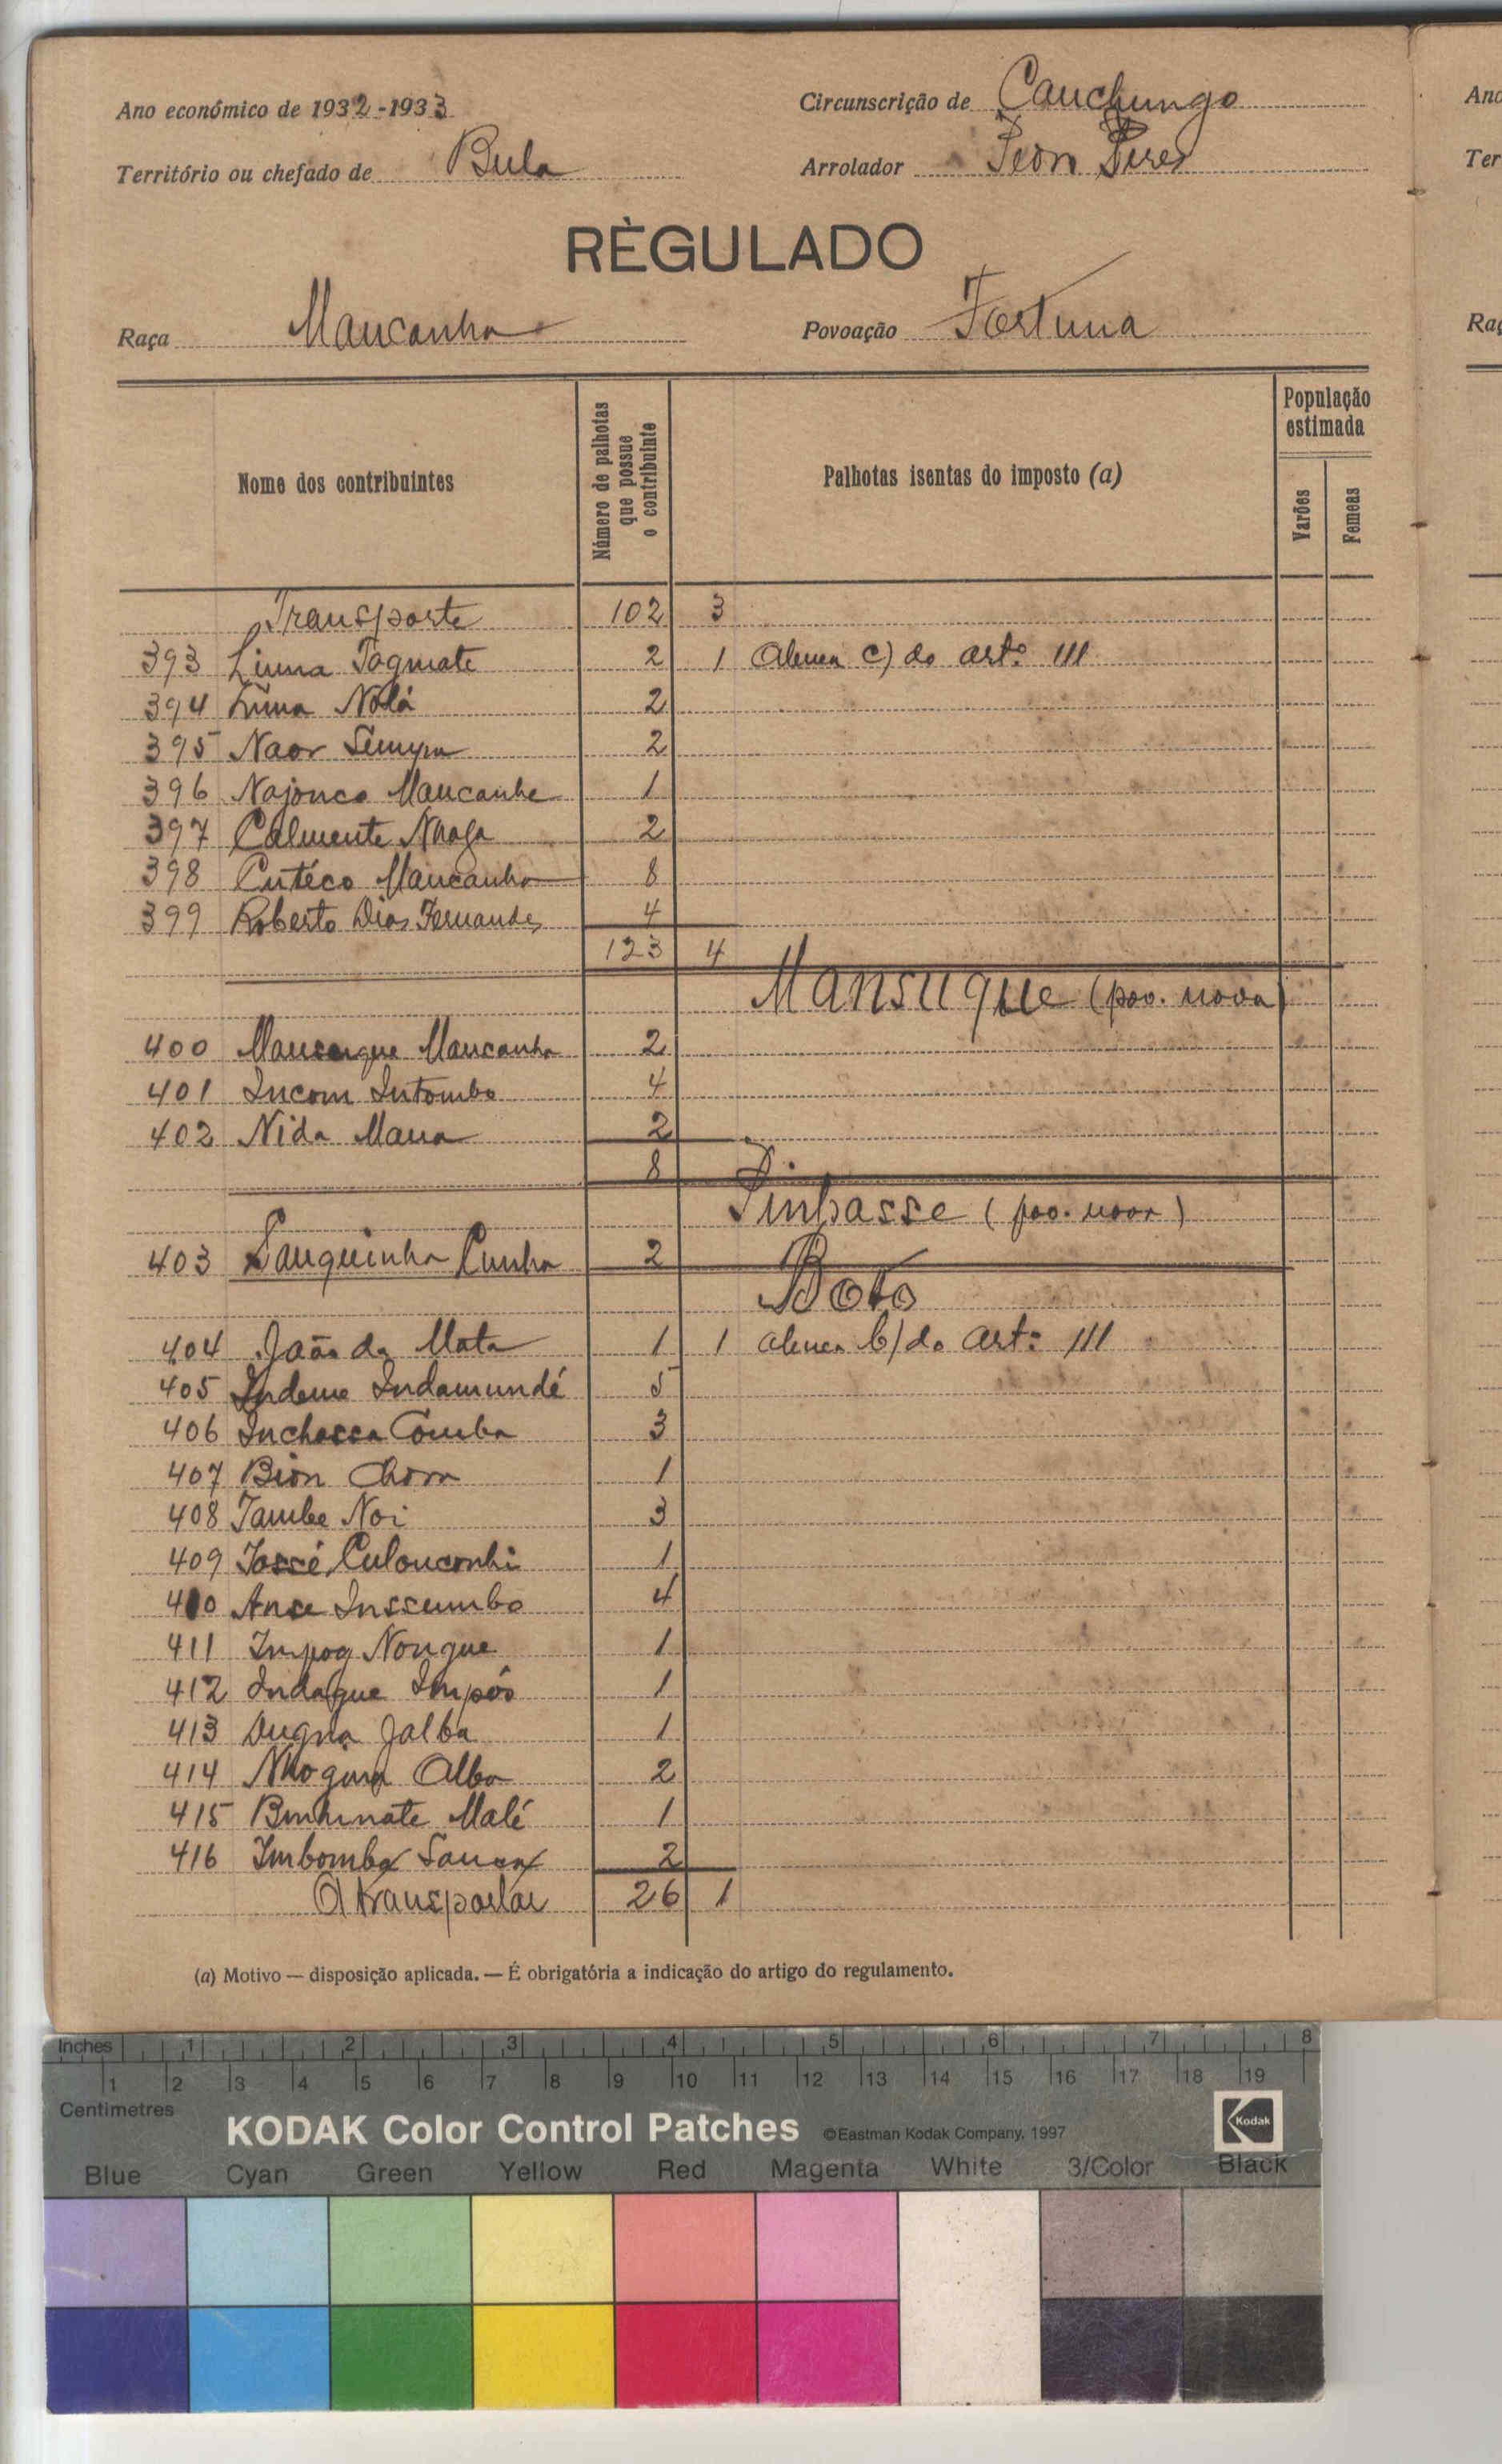 Ano económico de 1932-1933
Circunscrição de Canchungo
Território ou chefado de Bula
Arrolador Pires
RÈGULADO
Raça Mancanha
Povoação Fortuna
Nome dos contribuintes
Número de palhotas que possue o contribuinte
Palhotas isentas do imposto (a)
População estimada
Varões
Femeas
Transporte 102 3
393 Linna Tagmate 2 1 Alinea c) do artº 111
394 Nólá 2
395 Naor 2
396 Najonco Mancanhe 1
397 Calmente Nhaga 2
398 Cutéco Mancanha 8
399 Roberto Dias Fernandes 4
123 4
Mansuque (pov. nova)
400 Mansuque Mancanha 2
401 Incom Intombo 4
402 Nida Mana 2
8
Pinhasse (pov. nova)
403 Sanquinha Cunha 2
Bóto
404 João da Mata 1 1 alinea b) do artº 111
405 Indeme Indamundé 5
406 Inchassa Comba 3
407 Bion Chom 1
408 Tambe Noi 3
409 Jossé 1
410 Anse Inssumbo 4
411 Impog Nongue 1
412 Indaque Impós 1
413 Dugna Jalba 1
414 Albo 2
415 Malé 1
416 Imbomba 2
A transportar 26 1
(a) Motivo — disposição aplicada. — É obrigatória a indicação do artigo do regulamento.
Inches 1 2 3 4 5 6 7 8
1 2 3 4 5 6 7 8 9 10 11 12 13 14 15 16 17 18 19
Centimetres
KODAK Color Control Patches ©Eastman Kodak Company, 1997 Kodak
Blue Cyan Green Yellow Red Magenta White 3/Color Black